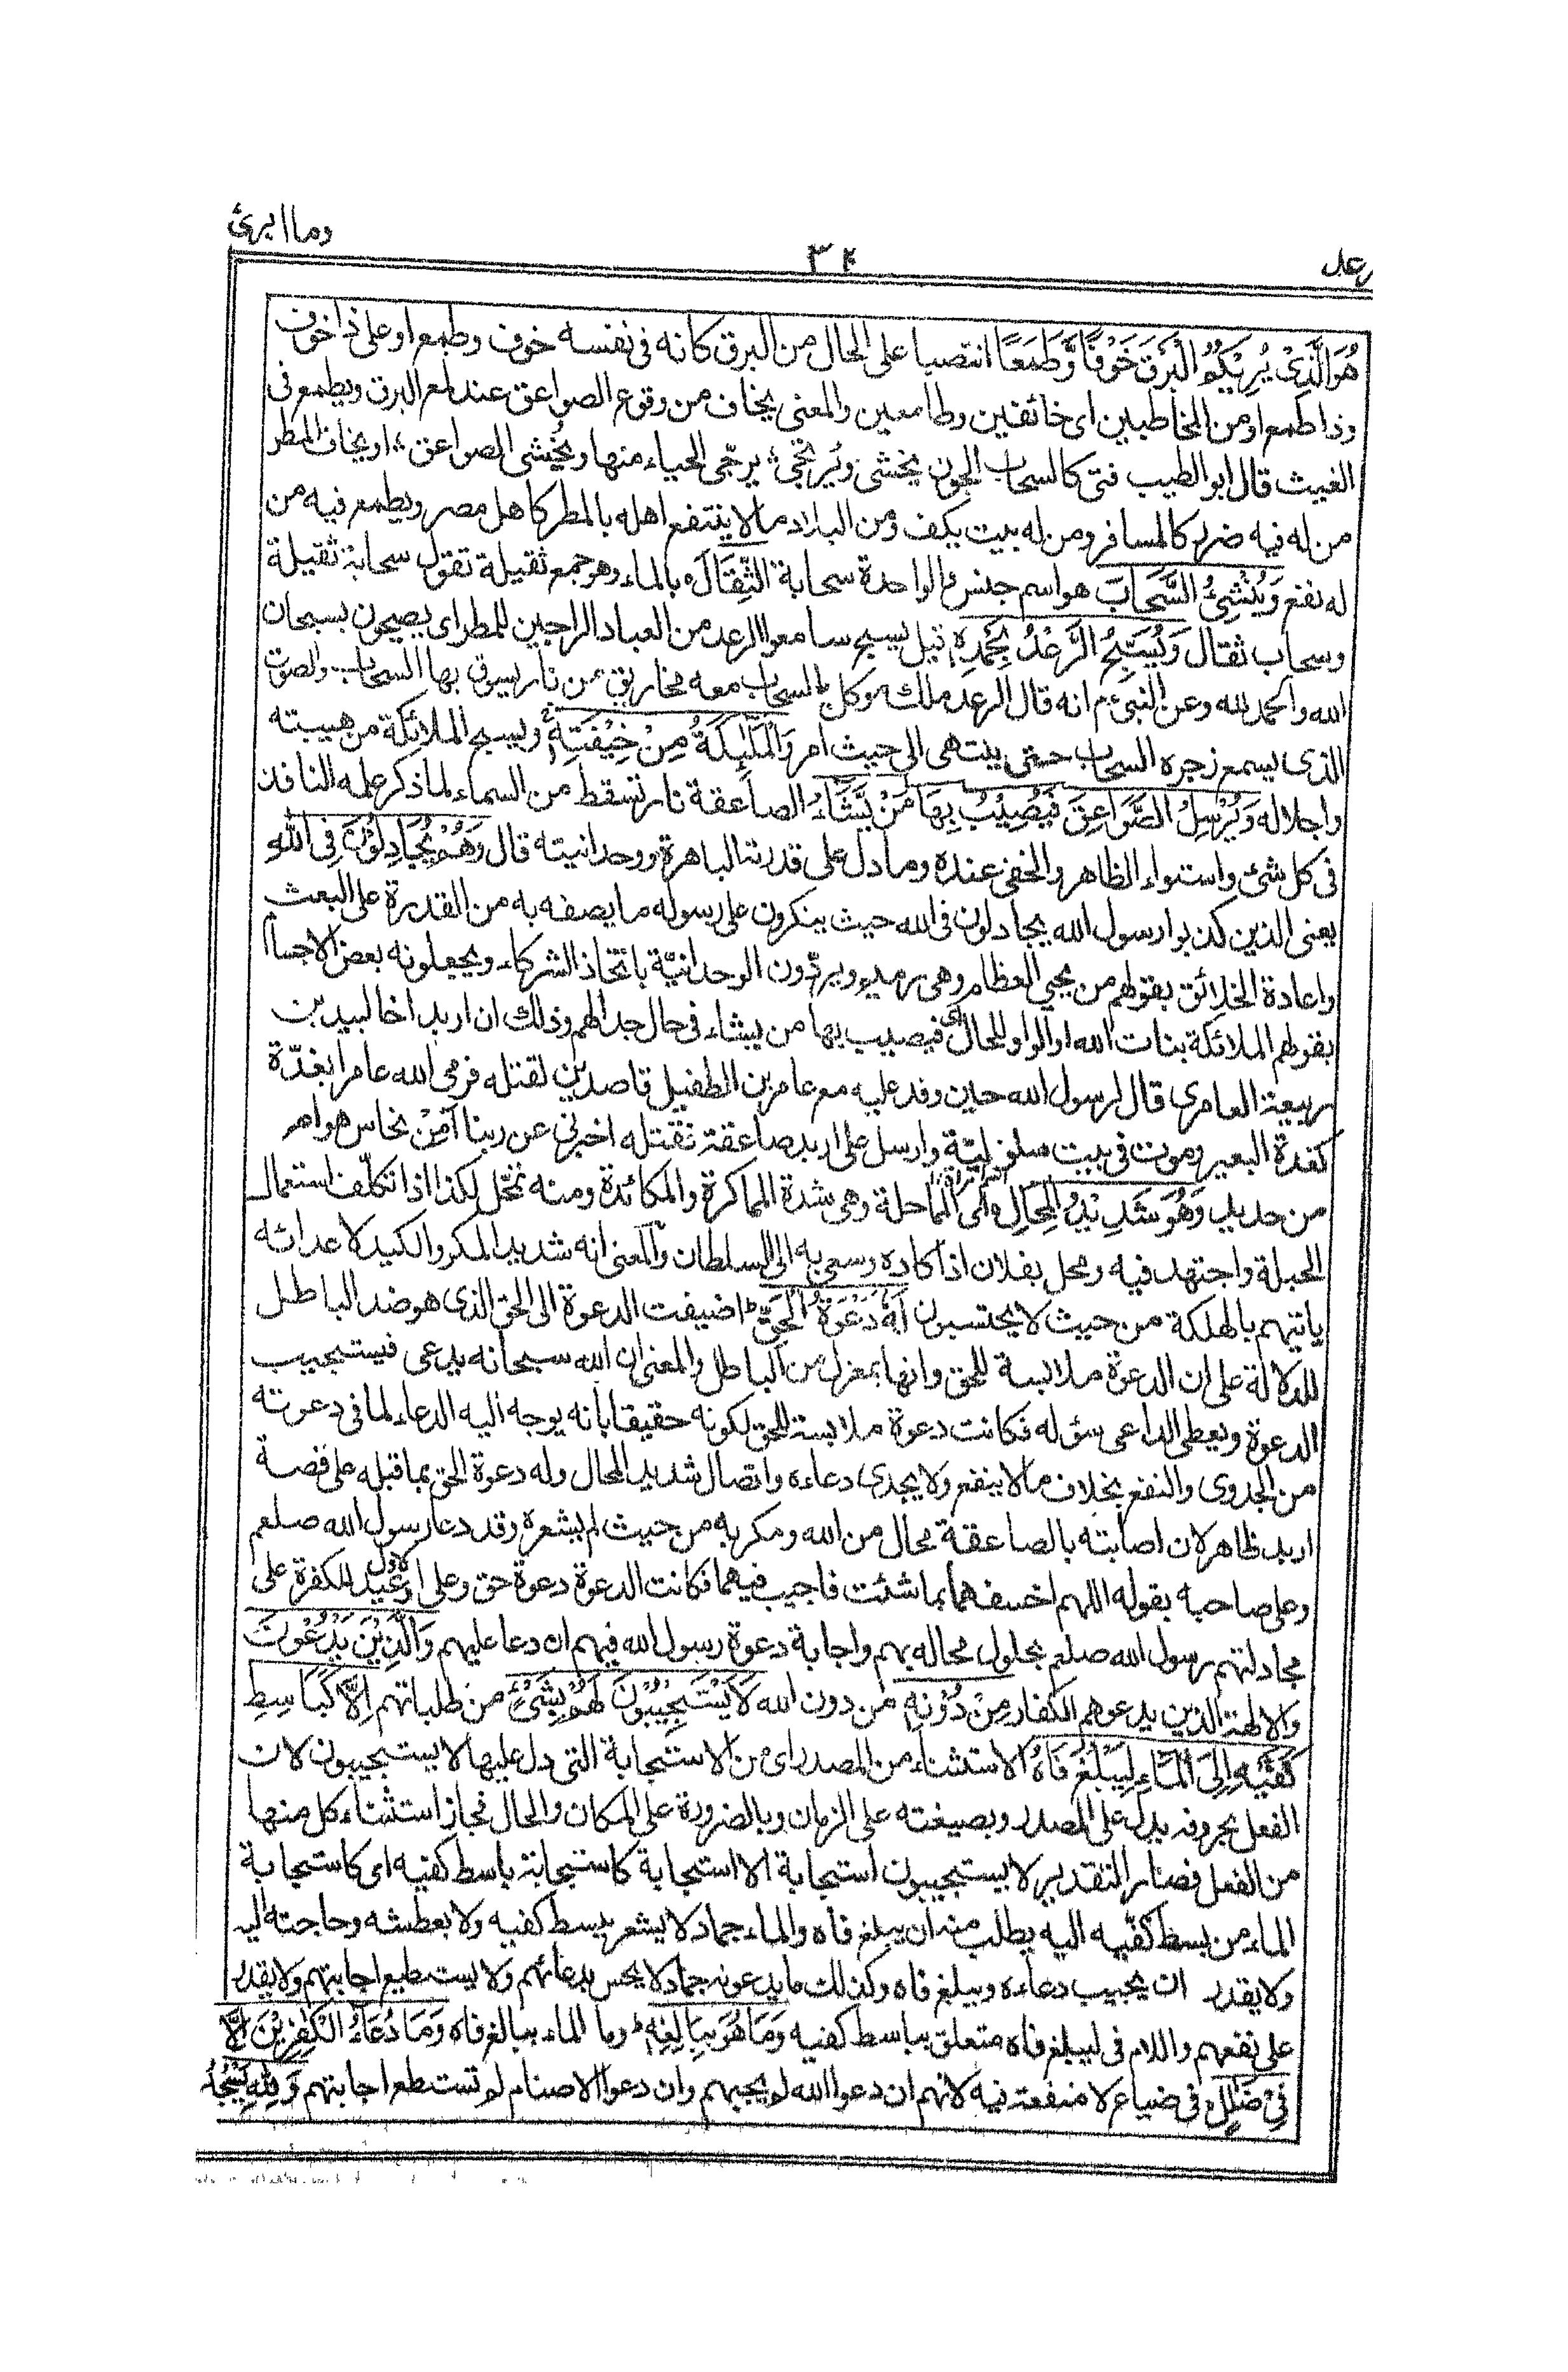 وما ابرئ
٣٢
رعد
هُوَ الَّذِىْ يُرِيْكُمُ الْبَرْقَ خَوْفًا وَّطَمَعًا انتصبا على الحال من البرق كانه فى نفسه خوف وطمع او على ذا خوف
وذا طمع او من المخاطبين اى خائفين وطامعين والمعنى يخاف من وقوع الصواعق عند لمع البرق ويطمع فى
الغيث قال ابو الطيب فتى كالسحاب الجون يخشى ويُرتجى ؛ يرجّى الحياء منها ويُخشى الصواعق ؛؛ او يخاف المطر
من له فيه ضرر كالمسافر ومن له بيت يكف ومن البلاد ما لا ينتفع اهله بالمطر كاهل مصر ويطمع فيه من
له نفع وَيُنْشِئُ السَّحَابَ هو اسم جنس والواحدة سحابة الثِّقَالَ بالماء وهو جمع ثقيلة تقول سحابة ثقيلة
وسحاب ثقال وَيُسَبِّحُ الرَّعْدُ بِحَمْدِهٖ قيل يسبح سامعوا الرعد من العباد الراجين للمطر اى يصيحون بسبحان
الله والحمد لله وعن النبى م انه قال الرعد ملك وكل بالسحاب معه مخاريق من نار يسوق بها السحاب والصوت
الذى يسمع زجره السحاب حتى ينتهى الى حيث امر وَالْمَلٰٓئِكَةُ مِنْ خِيْفَتِهٖ ويسبح الملائكة من هيبته
واجلاله وَيُرْسِلُ الصَّوَاعِقَ فَيُصِيْبُ بِهَا مَنْ يَّشَآءُ الصاعقة نار تسقط من السماء لما ذكر علمه النافذ
فى كل شئ واستواء الظاهر والخفى عنده وما دل على قدرته الباهرة ووحدانيته قال وَهُمْ يُجَادِلُوْنَ فِى اللّٰهِ
يعنى الذين كذبوا رسول الله يجادلون فى الله حيث ينكرون على رسوله ما يصفه به من القدرة على البعث
واعادة الخلائق بقولهم من يحيى العظام وهى رميم ويردّون الوحدانيّة باتخاذ الشركاء ويجعلونه بعض الاجسام
بقولهم الملائكة بنات الله او الواو للحال اى فيصيب بها من يشاء فى حال جدالهم وذلك ان اربد اخا لبيد بن
ربيعة العامرى قال لرسول الله حين وفد عليه مع عامر بن الطفيل قاصدين لقتله فرمى الله عامرا بغدّة
كغدة البعير وموت فى بيت سلوليّة وارسل على اربد صاعقة فقتله اخبرنى عن ربنا أمِنْ نحاس هو ام
من حديد وَهُوَ شَدِيْدُ الْمِحَالِ اى المماحلة وهى شدة المماكرة والمكائدة ومنه تمحّل لكذا اذا تكلّف استعمال
الحيلة واجتهد فيه ومحل بفلان اذا كاده وسعى به الى السلطان والمعنى انه شديد المكر والكيد لاعدائه
ياتيهم بالهلكة من حيث لا يحتسبون لَهٗ دَعْوَةُ الْحَقِّ اضيفت الدعوة الى الحق الذى هو ضد الباطل
للدلالة على ان الدعوة ملابسة للحق وانها بمعزل من الباطل والمعنى ان الله سبحانه يدعى فيستجيب
الدعوة ويعطى الداعى سؤله فكانت دعوة ملابسة للحق لكونه حقيقا بانه يوجه اليه الدعاء لما فى دعوته
من الجدوى والنفع بخلاف ما لا ينفع ولا يجدى دعاءه واتصال شديد المحال وله دعوة الحق بما قبله على قصة
اربد ظاهر لان اصابته بالصاعقة محال من الله ومكر به من حيث لم يشعر وقد دعا رسول الله صلعم
وعلى صاحبه بقوله اللهم اخسفهما بما شئت فاجيب فيهما فكانت الدعوة دعوة حق وعلى الاول وعيد للكفرة على
مجادلتهم رسول الله صلعم بحلول محاله بهم واجابة دعوة رسول الله فيهم ان دعا عليهم وَالَّذِيْنَ يَدْعُوْنَ
والالهة الذين يدعوهم الكفار مِنْ دُوْنِهٖ من دون الله لَا يَسْتَجِيْبُوْنَ لَهُمْ بِشَىْءٍ من طلباتهم اِلَّا كَبَاسِطِ
كَفَّيْهِ اِلَى الْمَآءِ لِيَبْلُغَ فَاهُ الاستثناء من المصدر اى من الاستجابة التى دل عليها لا يستجيبون لان
الفعل بحروفه يدل على المصدر وبصيغته على الزمان وبالضرورة على المكان والحال فجاز استثناء كل منها
من الفعل فصار التقدير لا يستجيبون استجابة الا استجابة كاستجابة باسط كفيه اى كاستجابة
الماء من بسط كفّيه اليه يطلب منه ان يبلغ فاه والماء جماد لا يشعر ببسط كفيه ولا بعطشه وحاجته اليه
ولا يقدر ان يجيب دعاءه ويبلغ فاه وكذلك ما يدعونه جماد لا يحس بدعائهم ولا يستطيع اجابتهم ولا يقدر
على نفعهم واللام فى ليبلغ فاه متعلق بباسط كفيه وَمَا هُوَ بِبَالِغِهٖ وما الماء ببالغ فاه وَمَا دُعَآءُ الْكٰفِرِيْنَ اِلَّا
فِىْ ضَلٰلٍ فى ضياع لا منفعة فيه لانهم ان دعوا الله لم يجبهم وان دعوا الاصنام لم تستطع اجابتهم وَلِلّٰهِ يَسْجُدُ